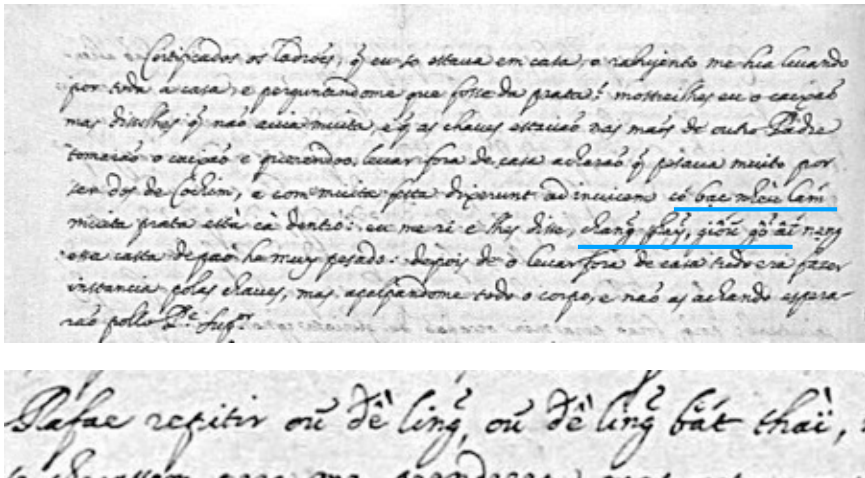 Certificados os ladrões, q̃ eu so estaua em casa, o rabujento me hia leuando
por toda a casa, e perguntandome que fosse da prata: mostreilhes eu o caixaõ
mas disselhes q̃ naõ auia muita, e q̃ as chaues estauaõ nas maõs de outro Padre
tomaraõ o caixaõ e querendoo leuar fora de casa acharaõ q̃ pesaua muito por
ser dos de Cochim, e com muita festa dixerunt ad inuicem có bạc nhèu lám
muita prata està cà dentro: eu me ri e lhes disse, chang̃ phảy, gióũ gổ ái nang
esse casta de pao he muy pesado. depois de o leuar fora de casa tudo era fazer
instancia polas chaues, mas apalpandome todo o corpo, e naõ as achando espera-
raõ pollo Pᵉ Supᵒʳ
Rafael repitir oũ đề ling̃, oũ đề ling̃ bắt thaï,